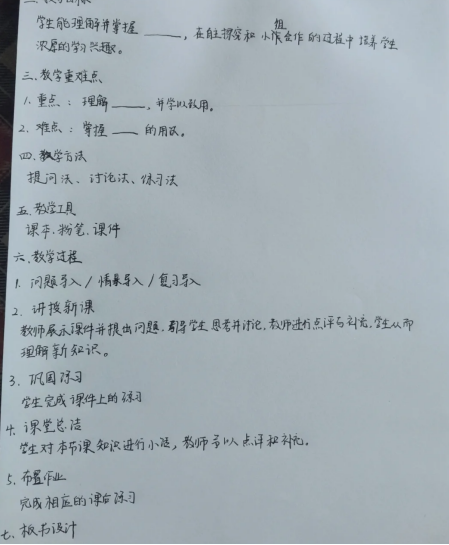 二、教学目标
学生能理解并掌握 ____，在自主探究和小组合作的过程中培养学生
浓厚的学习兴趣。
三、教学重难点
1. 重点：理解 ____，并学以致用。
2. 难点：掌握 ____ 的用法。
四、教学方法
提问法、讨论法、练习法
五、教学工具
课本、粉笔、课件
六、教学过程
1. 问题导入 / 情景导入 / 复习导入
2. 讲授新课
教师展示课件并提出问题，引导学生思考并讨论，教师进行点评与补充，学生从而
理解新知识。
3. 巩固练习
学生完成课件上的练习
4. 课堂总结
学生对本节课知识进行小结，教师予以点评和补充。
5. 布置作业
完成相应的课后练习
七、板书设计